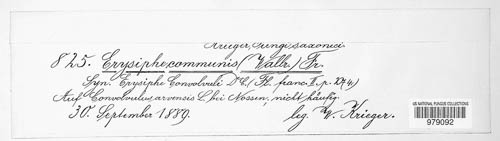 Krieger, Fungi saxonici
825. Erysiphe communis (Wallr.) Fr.
Syn. Erysiphe Convolvuli DC. (Fl. franc. II. p. 274)
Auf Convolvulus arvensis L. bei Nossen, nicht häufig.
30. September 1889. leg. W. Krieger.
US NATIONAL FUNGUS COLLECTIONS
979092